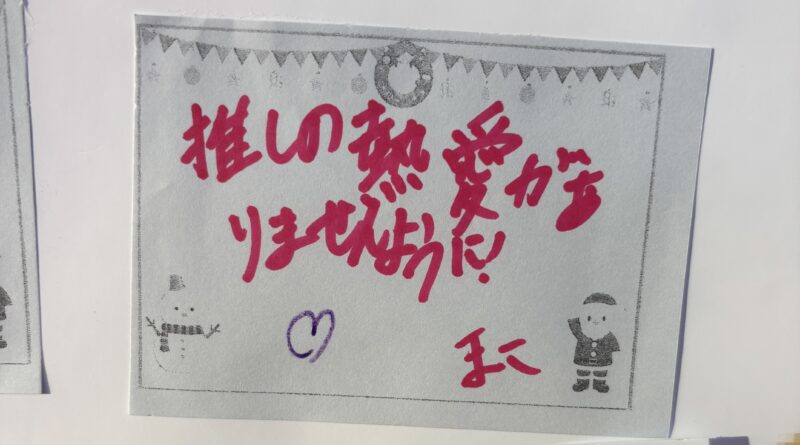 推しの熱愛があ
りませんように!
まこ